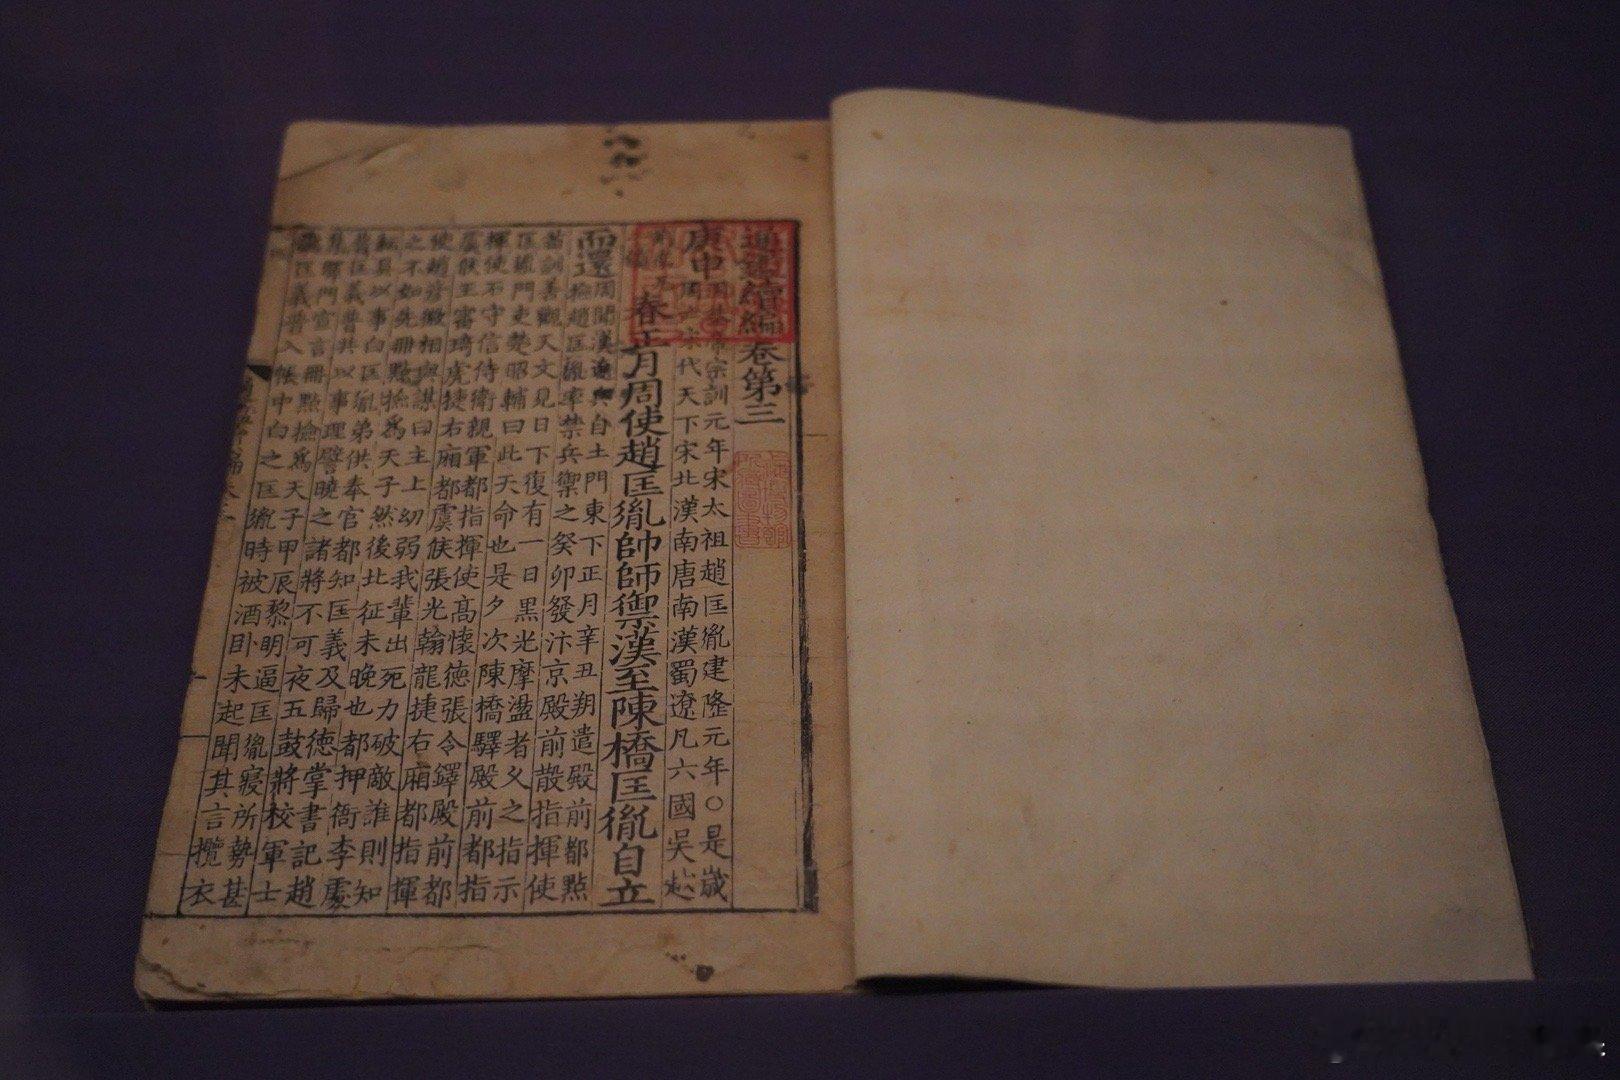 通鑑續編卷第三
庚申
周恭帝宗訓元年宋太祖趙匡胤建隆元年〇是歳
周亡宋代天下宋北漢南唐南漢蜀遼凡六國吳越
春正月周使趙匡胤帥師禦漢至陳橋匡胤自立
而還
周聞漢遼兵自土門東下正月辛丑朔遣殿前都點
檢趙匡胤率禁兵禦之癸卯發汴京殿前散指揮使
苗訓善觀天文見日下復有一日黑光摩盪者久之指示
匡胤門吏楚昭輔曰此天命也是夕次陳橋驛殿前都指
揮使石守信侍衛親軍都指揮使高懷德張令鐸殿前都
虞候王審琦虎捷右廂都虞候張光翰龍捷右廂都指揮
使趙彥徽相與謀曰主上幼弱我輩出死力破敵誰則知
之不如先冊點檢爲天子然後北征未晚也都押衙李處
耘具以事白匡胤弟供奉官都知匡義及歸德掌書記趙
普匡義普共以事理譬曉之諸將不可夜五鼓將校軍士
集驛門宣言冊點檢爲天子甲辰黎明逼匡胤寢所勢甚
匡義普入帳中白之匡胤時被酒卧未起聞其言攬衣